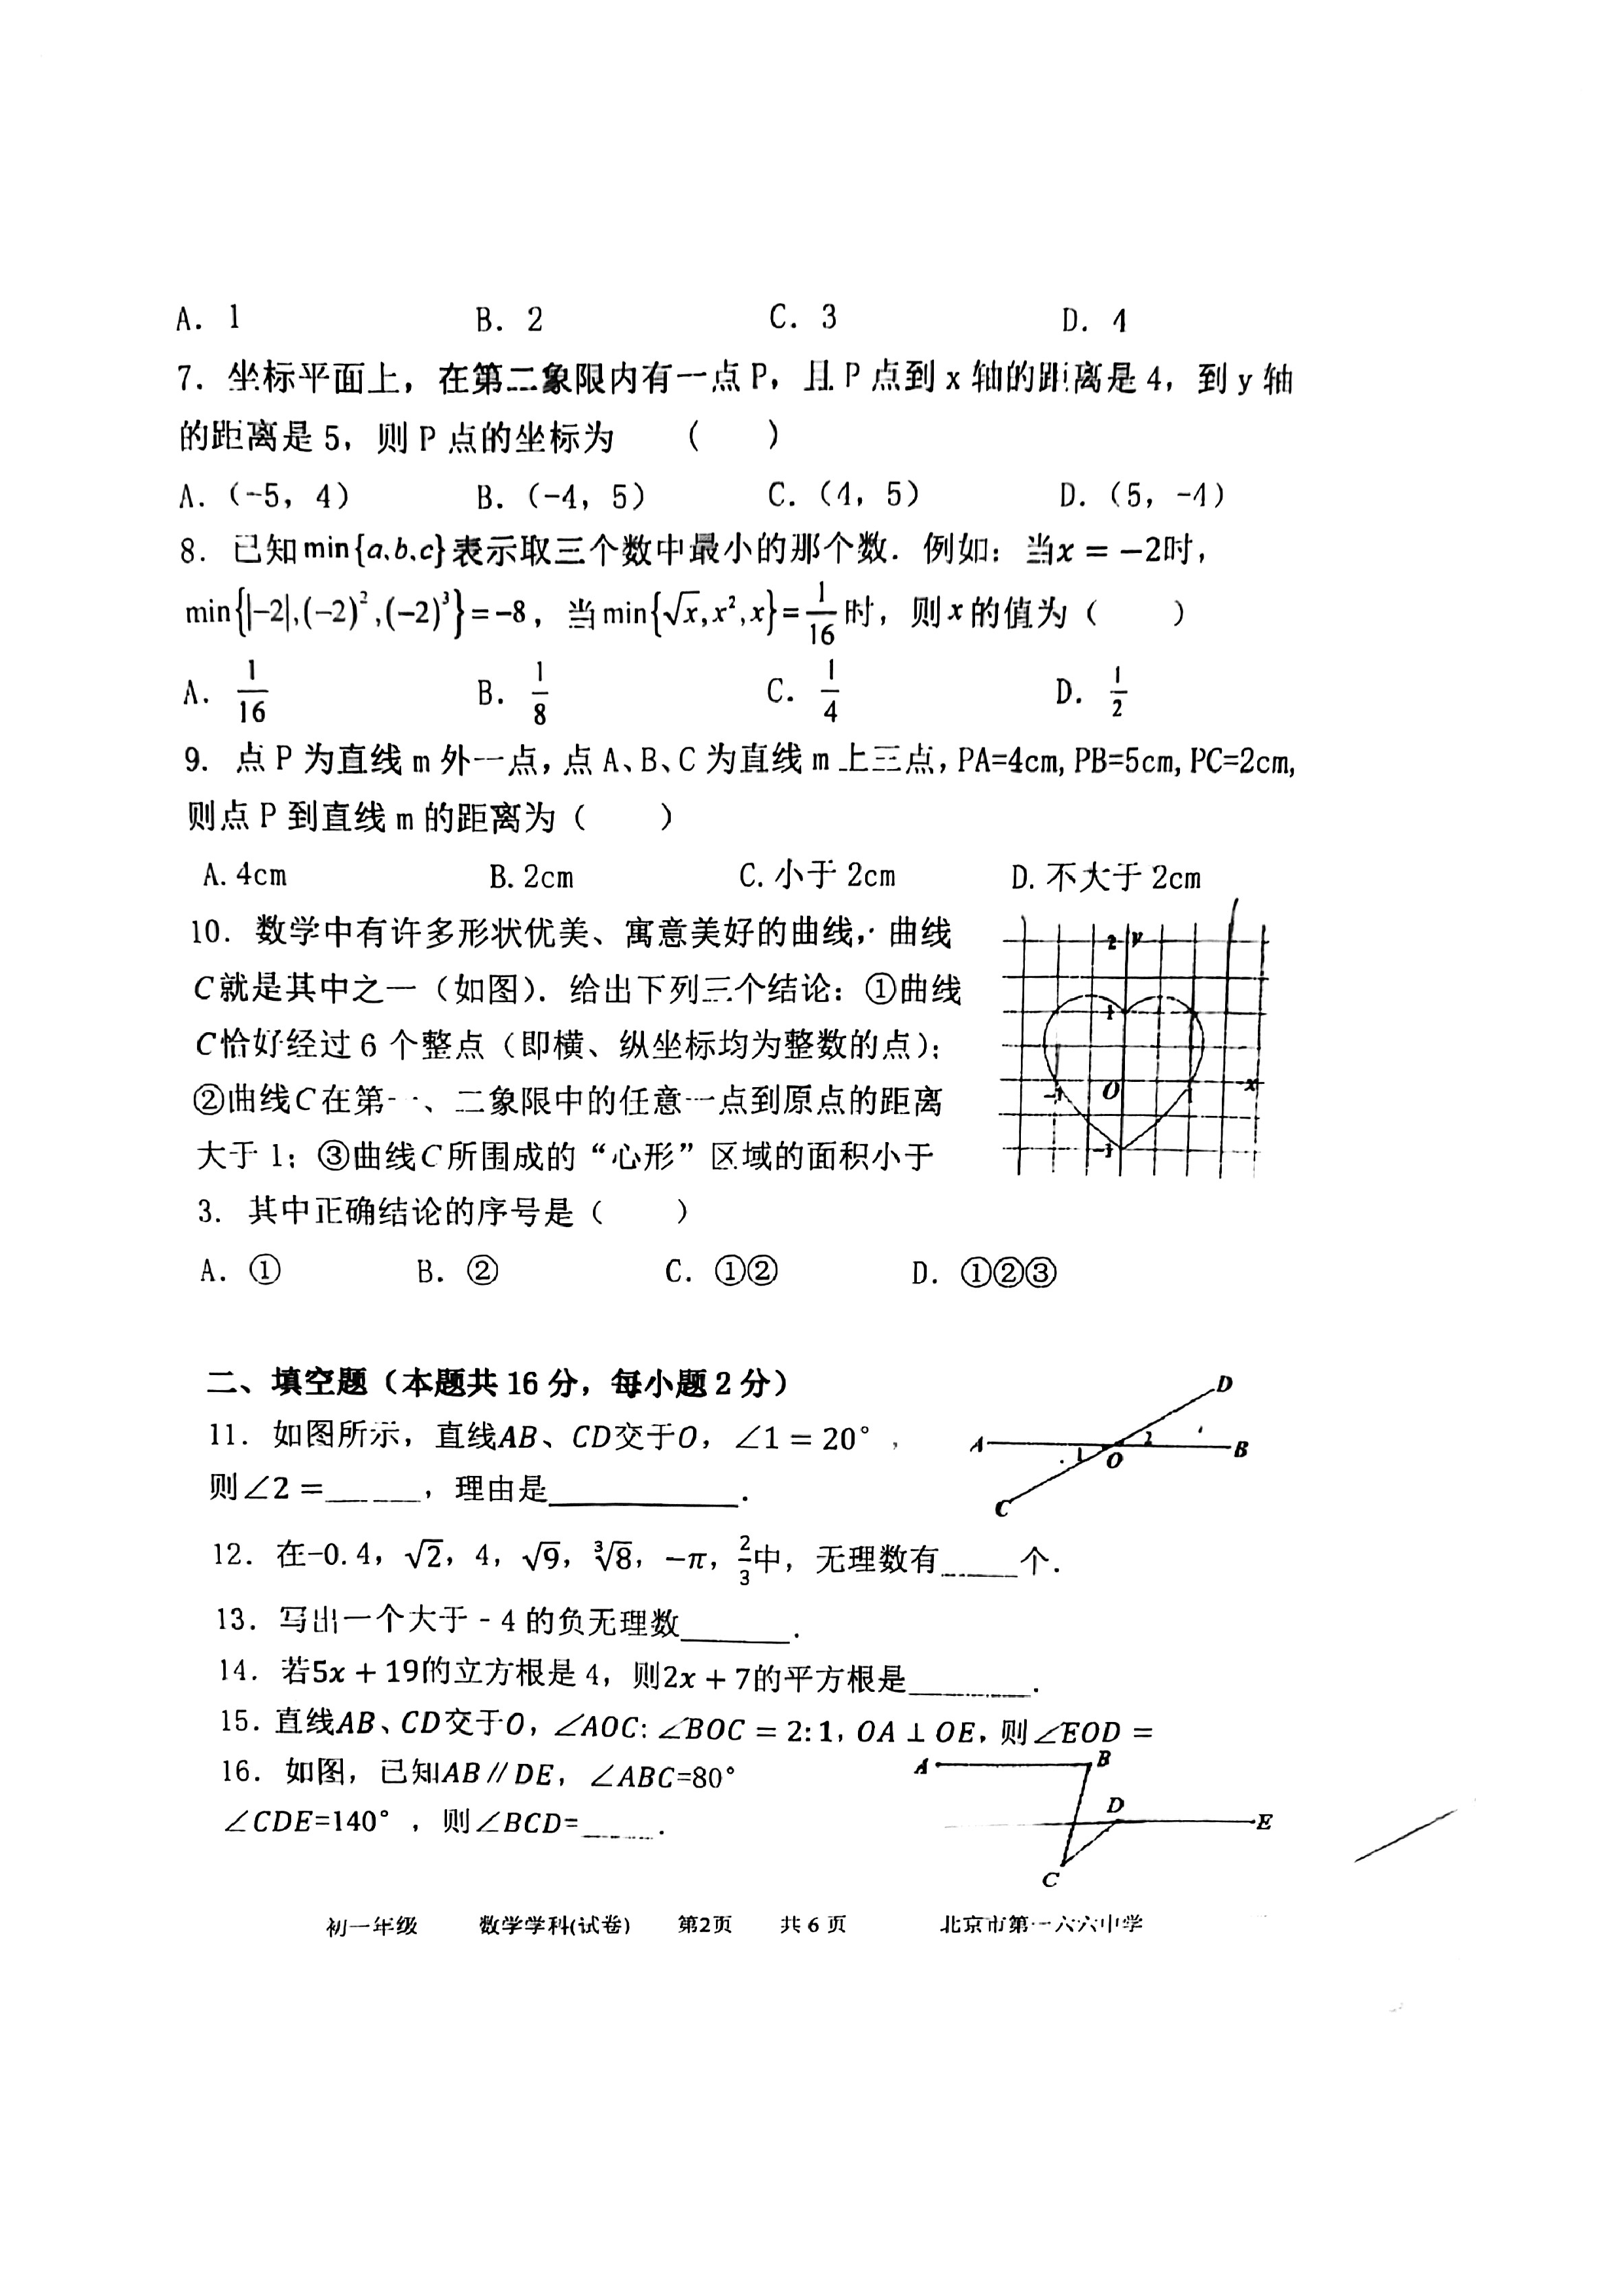 A. 1 B. 2 C. 3 D. 4
7. 坐标平面上，在第二象限内有一点 P，且 P 点到 x 轴的距离是 4，到 y 轴
的距离是 5，则 P 点的坐标为 （ ）
A.（-5，4） B.（-4，5） C.（4，5） D.（5，-4）
8. 已知min{a、b、c}表示取三个数中最小的那个数．例如：当x = −2时，
min{|−2|,(−2)²,(−2)³}=−8，当min{√x,x²,x}=1/16时，则x的值为（ ）
A. 1/16 B. 1/8 C. 1/4 D. 1/2
9. 点 P 为直线 m 外一点，点 A、B、C 为直线 m 上三点，PA=4cm, PB=5cm, PC=2cm,
则点 P 到直线 m 的距离为（ ）
A. 4cm B. 2cm C. 小于 2cm D. 不大于 2cm
10. 数学中有许多形状优美、寓意美好的曲线，曲线
C就是其中之一（如图）．给出下列三个结论：①曲线
C恰好经过 6 个整点（即横、纵坐标均为整数的点）；
②曲线C在第一、二象限中的任意一点到原点的距离
大于 1；③曲线C所围成的“心形”区域的面积小于
3. 其中正确结论的序号是（ ）
2 y
1
-1 O 1 x
-1
A. ① B. ② C. ①② D. ①②③
二、填空题（本题共 16 分，每小题 2 分）
11. 如图所示，直线AB、CD交于O，∠1 = 20°，
则∠2 =______，理由是____________．
D
A 1 O 2 B
C
12. 在-0.4，√2，4，√9，∛8，−π，2/3中，无理数有_____个．
13. 写出一个大于 - 4 的负无理数_______．
14. 若5x + 19的立方根是 4，则2x + 7的平方根是________．
15. 直线AB、CD交于O，∠AOC: ∠BOC = 2:1，OA ⊥ OE，则∠EOD =
16. 如图，已知AB∥DE，∠ABC=80°
∠CDE=140°，则∠BCD=_____．
A B
D E
C
初一年级 数学学科(试卷) 第2页 共 6 页 北京市第一六六中学